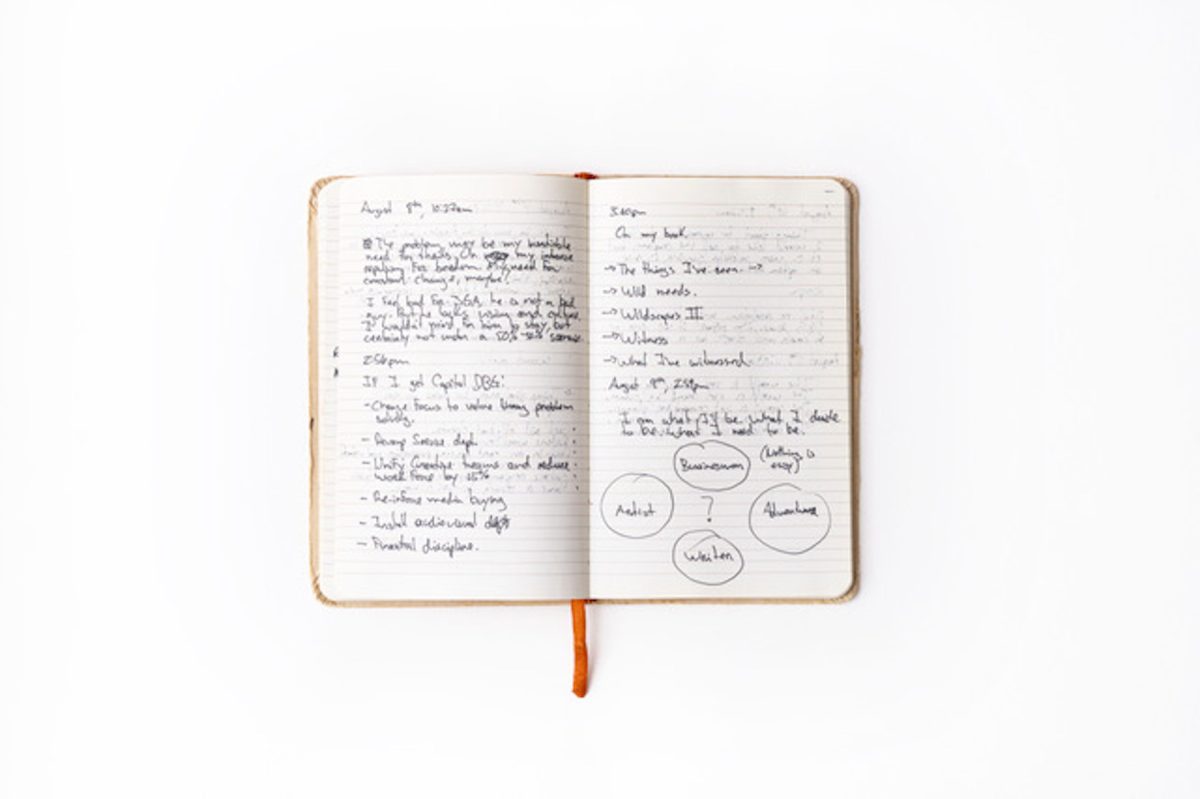 August 8th, 10:37am
The problem may be my
need for thrills. Or my intense
need for
constant change, maybe?
I feel bad for DGA, he is not a bad
guy. But he lacks vision and
I wouldn't for him to stay, but
certainly not under a 50%
2:56pm
If I get Capital DBG:
- Change focus to problem
solving.
- Revamp dept.
- Unify Creative teams and reduce
work force by 15%
- Re-inforce media buying
- Install audiovisual dept
- Financial discipline.
3:40pm
On my book
→ The things I've seen. →
→ Wild needs.
→ Wildscapes II
→ Witness
→ What I've witnessed
August 9th, 2:59pm
I am what I'll be, what I decide
to be, what I need to be.
Businessman
(Nothing is
easy)
Artist
?
Adventurer
Writer